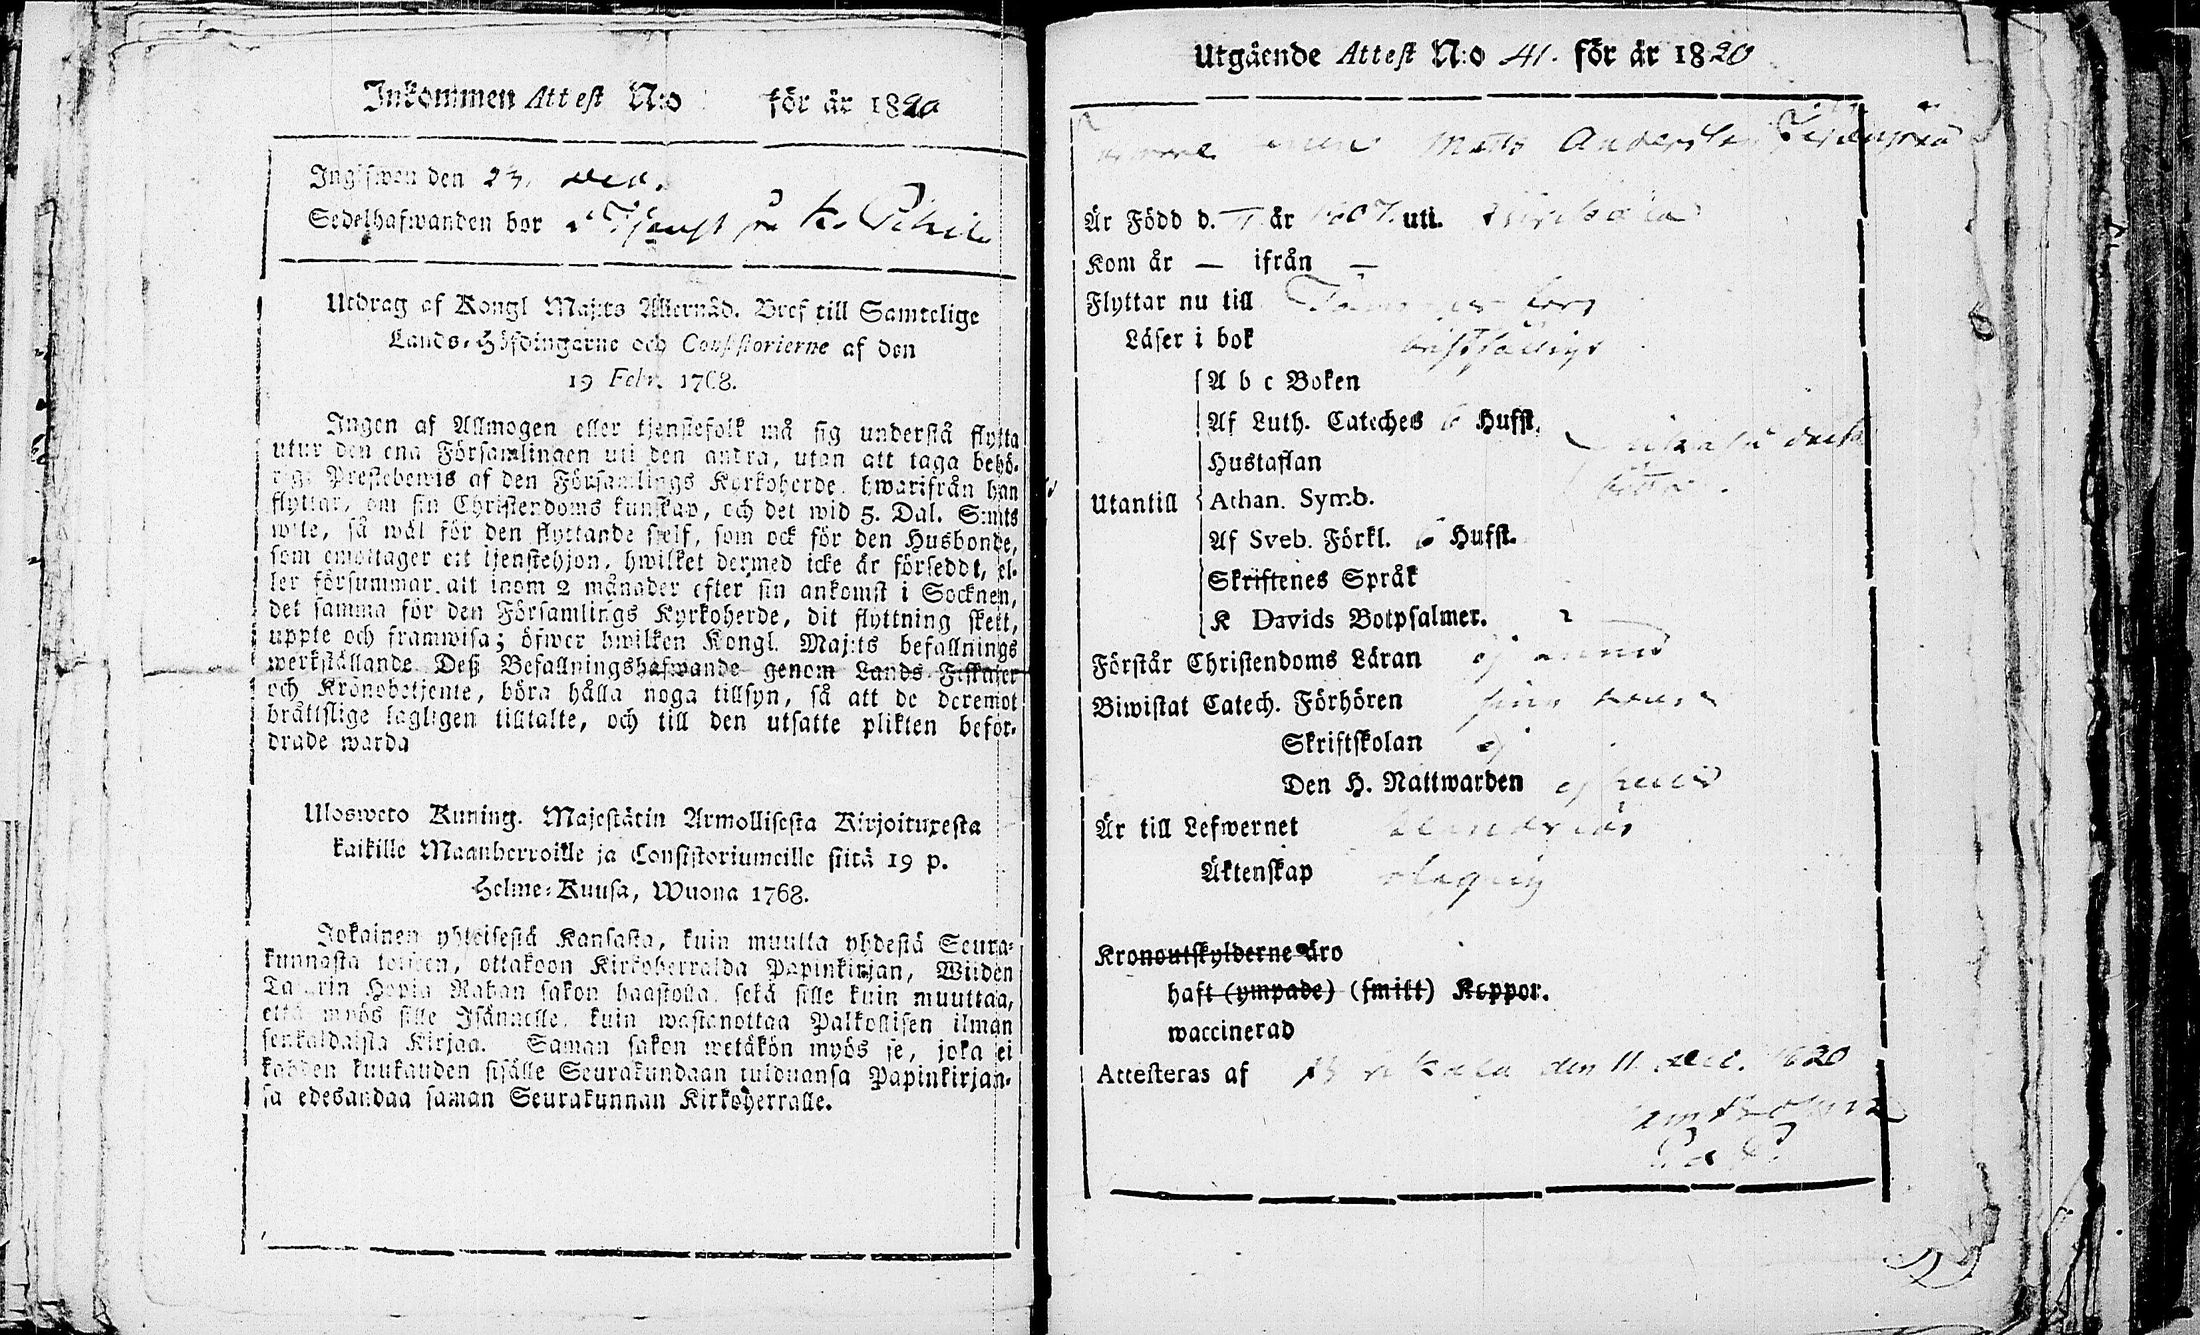 Inkommen Attest N:o för år 1820
Ingifwen den 23. Dec.
Sedelhafwanden bor i Tjenst på K.
Utdrag af Kongl Maj:ts Allernåd. Bref till Samtelige
Lands-Höfdingarne och Consistorierne af den
19 Febr. 1768.
Ingen af Allmogen eller tjenstefolk må sig understå flytta
utur den ena Församlingen uti den andra, utan att taga behö-
rigt Prestebewis af den Församlings Kyrkoherde, hwarifrån han
flyttar, om sin Christendoms kunskap, och det wid 5. Dal. S:mts
wite, så wäl för den flyttande sjelf, som ock för den Husbonde,
som emottager ett tjenstehjon, hwilket dermed icke är förseddt, el-
ler försummar att inom 2 månader efter sin ankomst i Socknen,
det samma för den Församlings Kyrkoherde, dit flyttning skett,
uppte och framwisa; öfwer hwilken Kongl. Maj:ts befallnings
werkställande Deß Befallningshafwande genom Lands-Fiskaler
och Kronobetjente, böra hålla noga tillsyn, så att de deremot
bråttslige lagligen tilltalte, och till den utsatte plikten befor-
drade warda
Ulosweto Kuning. Majestätin Armollisesta Kirjoituxesta
kaikille Maanherroille ja Consistoriumeille siitä 19 p.
Helme-Kuusa, Wuona 1768.
Jokainen yhteisestä Kansasta, kuin muutta yhdestä Seura-
kunnasta toiseen, ottakoon Kirkoherralda Papinkirjan, Wiiden
Talarin Hopia Rahan sakon haastolla, sekä sille kuin muuttaa,
että myös sille Isännelle, kuin wastanottaa Palkollisen ilman
senkaldaista Kirjaa. Saman sakon wetäkön myös se, joka ei
kahden kuukauden sisälle Seurakundaan tulduansa Papinkirjan-
sa edesandaa saman Seurakunnan Kirkoherralle.
Utgående Attest N:o 41. för år 1820
Matts Andersson
Är Född d. år 1807. uti.
Kom år — ifrån —
Flyttar nu till
Läser i bok
A b c Boken
Af Luth. Cateches 6 Hufst.
Hustaflan
Utantill Athan. Symb.
Af Sveb. Förkl. 6 Hufst.
Skriftenes Språk
K Davids Botpsalmer. 2
Förstår Christendoms Läran ej ännu
Biwistat Catech. Förhören
Skriftskolan ej
Den H. Nattwarden ej heller
Är till Lefwernet
Äktenskap
Kronoutskylderne äro
haft (ympade) (smitt) Koppor.
waccinerad
Attesteras af den 11. Dec. 1820